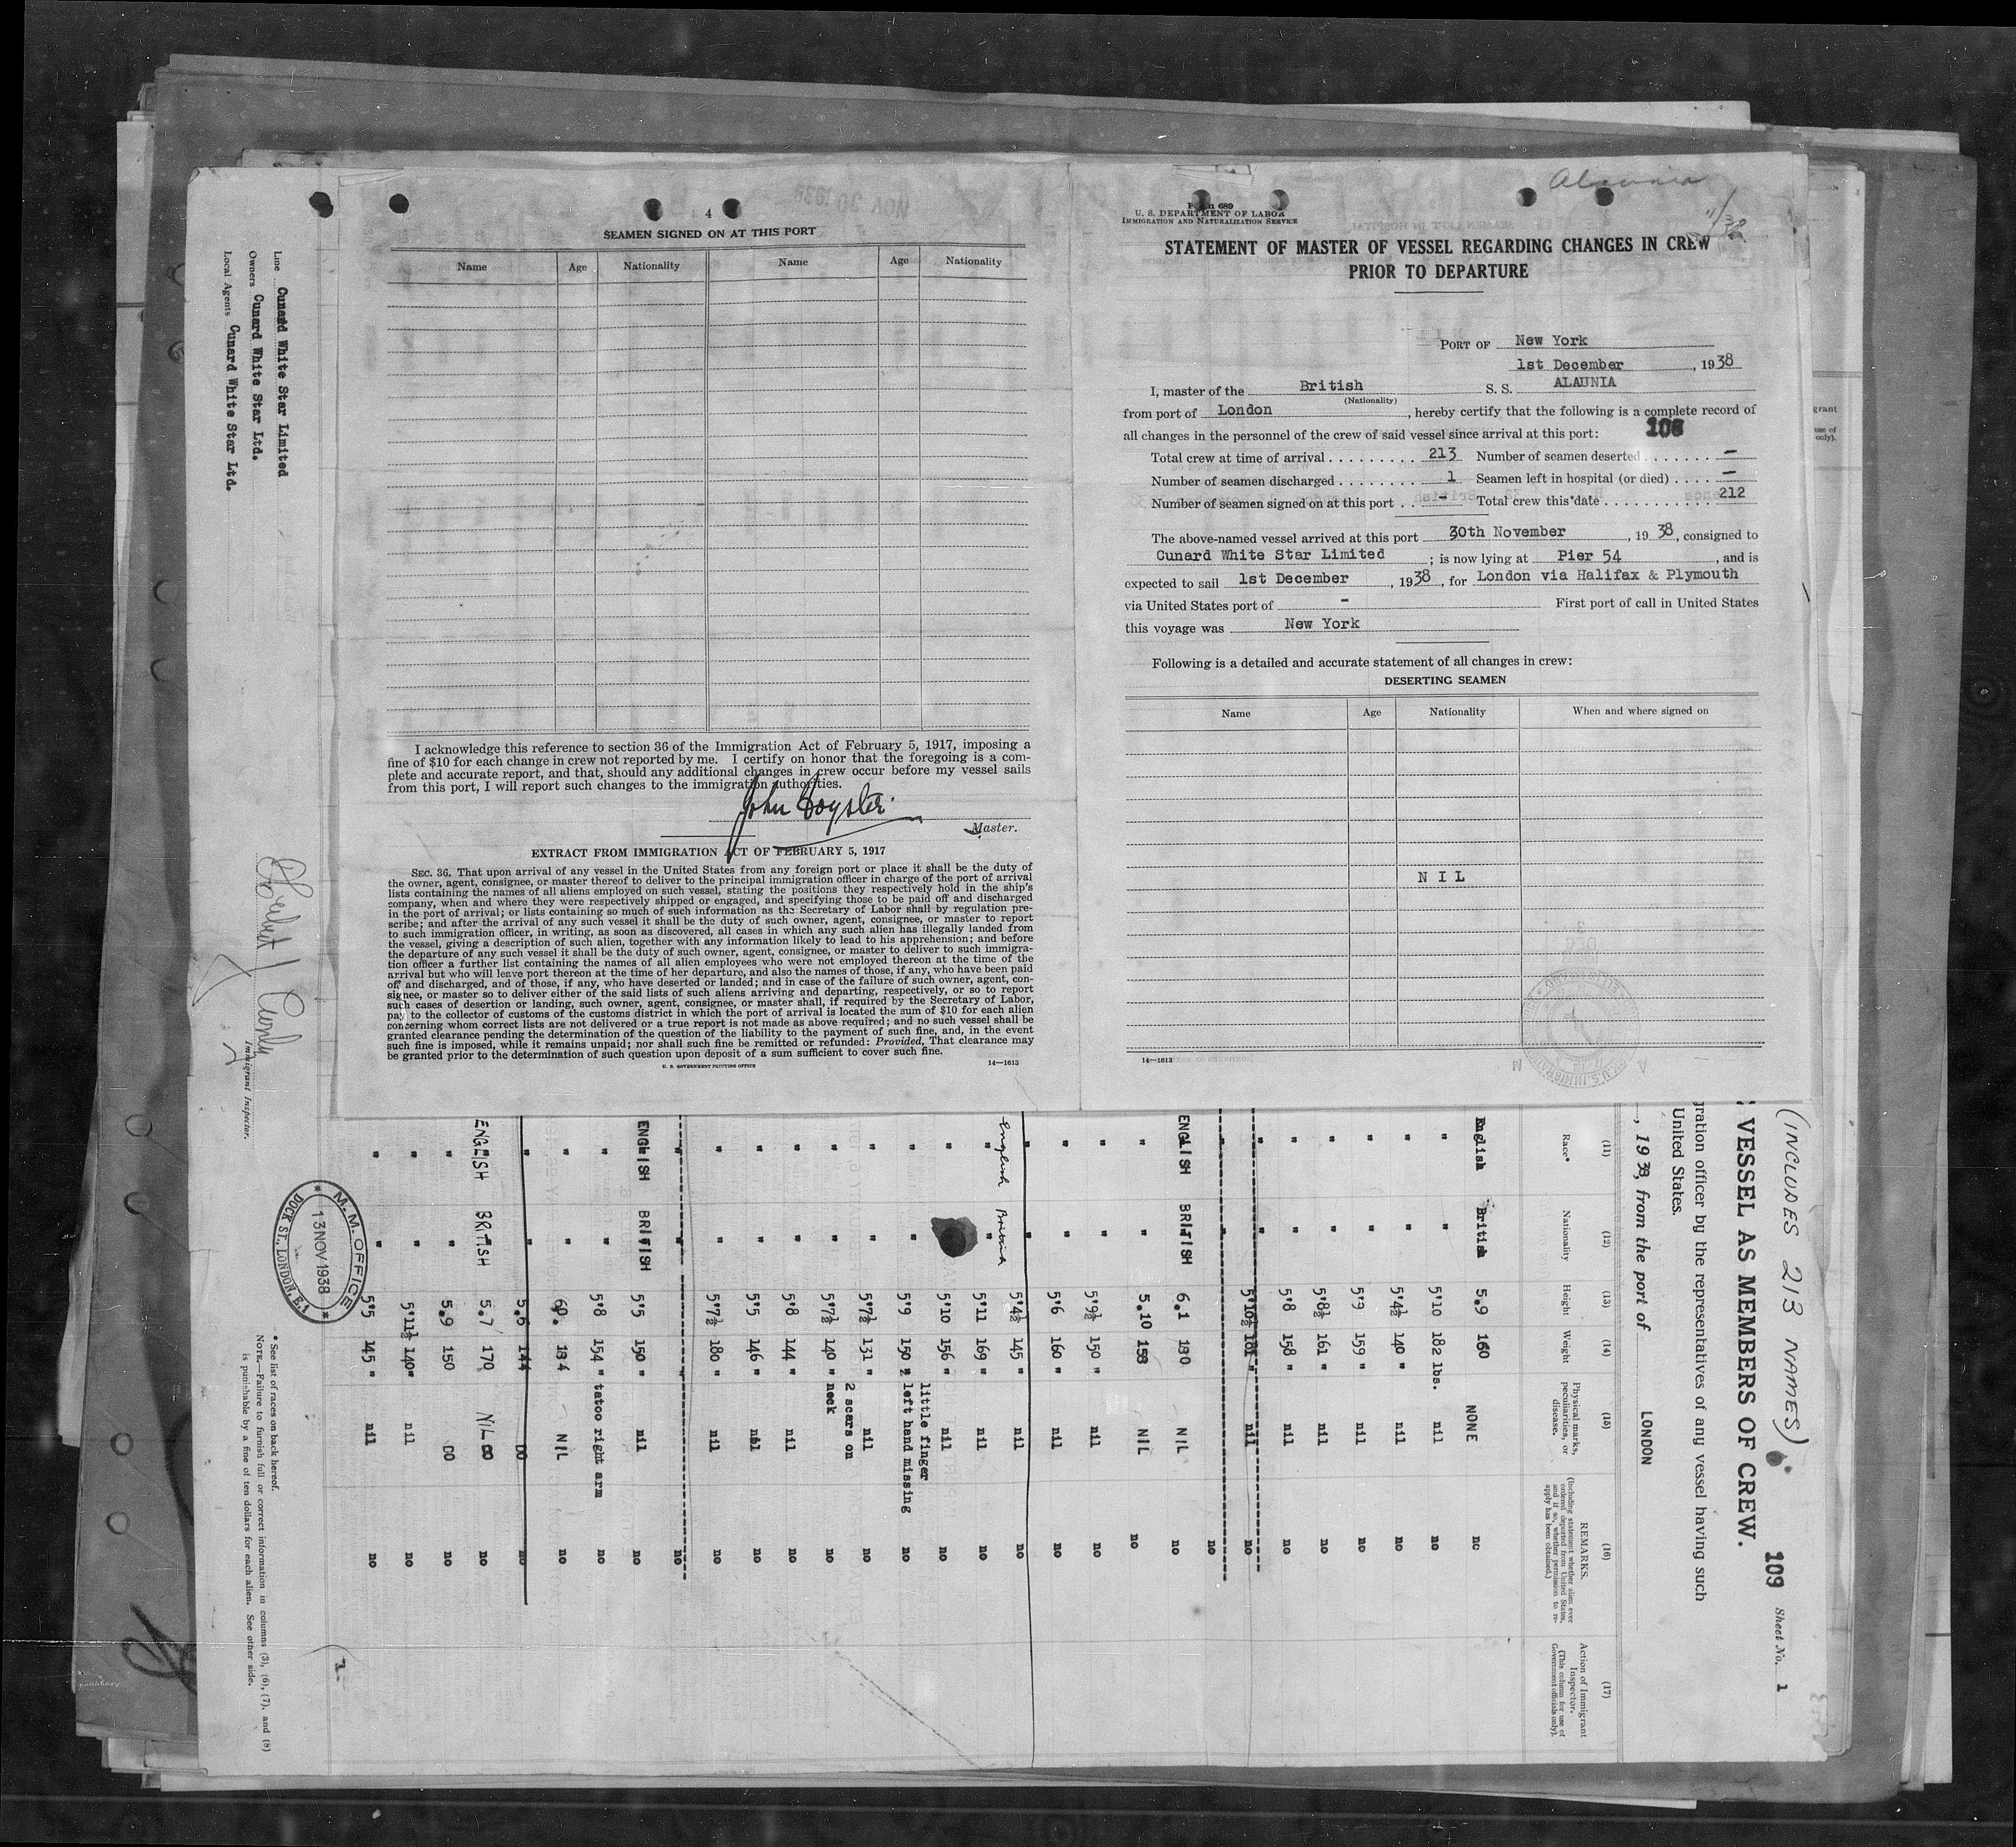 4
SEAMEN SIGNED ON AT THIS PORT
Name Age Nationality Name Age Nationality
I acknowledge this reference to section 36 of the Immigration Act of February 5, 1917, imposing a
fine of $10 for each change in crew not reported by me. I certify on honor that the foregoing is a com-
plete and accurate report, and that, should any additional changes in crew occur before my vessel sails
from this port, I will report such changes to the immigration authorities.
John
Master.
EXTRACT FROM IMMIGRATION ACT OF FEBRUARY 5, 1917
SEC. 36. That upon arrival of any vessel in the United States from any foreign port or place it shall be the duty of
the owner, agent, consignee, or master thereof to deliver to the principal immigration officer in charge of the port of arrival
lists containing the names of all aliens employed on such vessel, stating the positions they respectively hold in the ship's
company, when and where they were respectively shipped or engaged, and specifying those to be paid off and discharged
in the port of arrival; or lists containing so much of such information as the Secretary of Labor shall by regulation pre-
scribe; and after the arrival of any such vessel it shall be the duty of such owner, agent, consignee, or master to report
to such immigration officer, in writing, as soon as discovered, all cases in which any such alien has illegally landed from
the vessel, giving a description of such alien, together with any information likely to lead to his apprehension; and before
the departure of any such vessel it shall be the duty of such owner, agent, consignee, or master to deliver to such immigra-
tion officer a further list containing the names of all alien employees who were not employed thereon at the time of the
arrival but who will leave port thereon at the time of her departure, and also the names of those, if any, who have been paid
off and discharged, and of those, if any, who have deserted or landed; and in case of the failure of such owner, agent, con-
signee, or master so to deliver either of the said lists of such aliens arriving and departing, respectively, or so to report
such cases of desertion or landing, such owner, agent, consignee, or master shall, if required by the Secretary of Labor,
pay to the collector of customs of the customs district in which the port of arrival is located the sum of $10 for each alien
concerning whom correct lists are not delivered or a true report is not made as above required; and no such vessel shall be
granted clearance pending the determination of the question of the liability to the payment of such fine, and, in the event
such fine is imposed, while it remains unpaid; nor shall such fine be remitted or refunded: Provided, That clearance may
be granted prior to the determination of such question upon deposit of a sum sufficient to cover such fine.
U. S. GOVERNMENT PRINTING OFFICE 14—1613
Alaunia
Form 689
U. S. DEPARTMENT OF LABOR
IMMIGRATION AND NATURALIZATION SERVICE
STATEMENT OF MASTER OF VESSEL REGARDING CHANGES IN CREW
PRIOR TO DEPARTURE
PORT OF New York
1st December, 1938
I, master of the British S. S. ALAUNIA
(Nationality)
from port of London, hereby certify that the following is a complete record of
all changes in the personnel of the crew of said vessel since arrival at this port: 108
Total crew at time of arrival 213 Number of seamen deserted —
Number of seamen discharged 1 Seamen left in hospital (or died) —
Number of seamen signed on at this port - Total crew this date 212
The above-named vessel arrived at this port 30th November, 1938, consigned to
Cunard White Star Limited; is now lying at Pier 54, and is
expected to sail 1st December, 1938, for London via Halifax & Plymouth
via United States port of - First port of call in United States
this voyage was New York
Following is a detailed and accurate statement of all changes in crew:
DESERTING SEAMEN
Name Age Nationality When and where signed on
NIL
14—1613
(INCLUDES 213 NAMES)
109 Sheet No. 1
VESSEL AS MEMBERS OF CREW.
gration officer by the representatives of any vessel having such
United States.
, 1938, from the port of LONDON
(11) (12) (13) (14) (15) (16) (17)
Race* Nationality Height Weight Physical marks, peculiarities, or disease. REMARKS. (Including statement whether alien ever ordered deported from United States, and if so, whether permission to reapply has been obtained.) Action of Immigrant Inspector. (This column for use of Government officials only).
English British 5.9 160 NONE no
" " 5'10 182 lbs. nil no
" " 5'4½ 140 " nil no
" " 5'9 159 " nil no
" " 5'8½ 161 " nil no
" " 5'8 158 " nil no
" " 5'10½ 181 " nil no
" " no
ENGLISH BRITISH 6.1 130 NIL no
" " 5.10 158 NIL no
" " 5'9½ 150 " nil no
" " 5'6 160 " nil no
" " 5'4½ 145 " nil no
English British
" " 5'11 169 " nil no
" 5'10 156 " nil no
little finger
" " 5'9 150 " ½ left hand missing no
" " 5'7½ 131 " nil no
2 scars on
" " 5'7½ 140 " neck no
" " 5'8 144 " nil no
" " 5'5 146 " nil no
" " 5'7½ 180 " nil no
" " " no
ENGLISH BRITISH 5'5 150 " nil no
" " 5'8 154 " tatoo right arm no
" " 60. 134 NIL no
" " 5.6 144 DO no
ENGLISH BRITISH 5.7 170 NIL DO no
" " 5.9 150 DO no
" " 5'11½ 140 " nil no
" " 5'5 145 " nil no
1.
M. M. OFFICE
13 NOV 1938
DOCK ST., LONDON, E.1
* See list of races on back hereof.
NOTE.—Failure to furnish full or correct information in columns (3), (6), (7), and (8)
is punishable by a fine of ten dollars for each alien. See other side.
Line Cunard White Star Limited
Owners Cunard White Star Ltd.
Local Agents Cunard White Star Ltd.
Immigrant Inspector.
grant
use of
only).